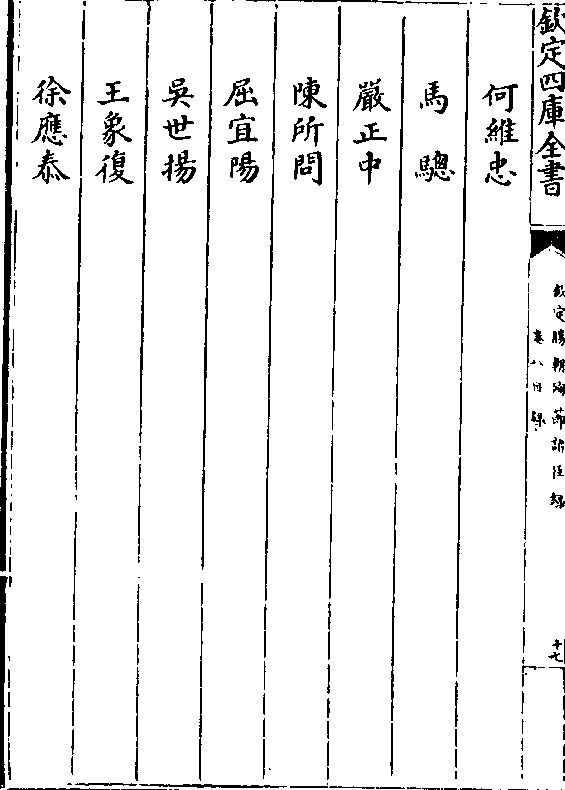 欽定四庫全書
欽定勝朝殉節諸臣錄
卷八目錄
十七
何維忠
馬驄
嚴正中
陳所問
屈宜陽
吳世揚
王象復
徐應泰